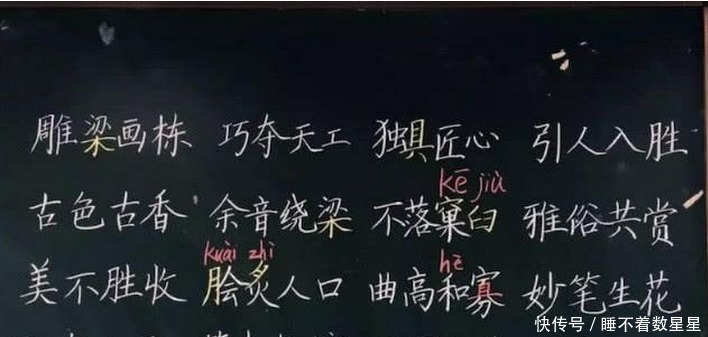 雕梁画栋 巧夺天工 独具匠心 引人入胜
kē jiù
古色古香 余音绕梁 不落窠臼 雅俗共赏
kuài zhì hè
美不胜收 脍炙人口 曲高和寡 妙笔生花
快传号/睡不着数星星